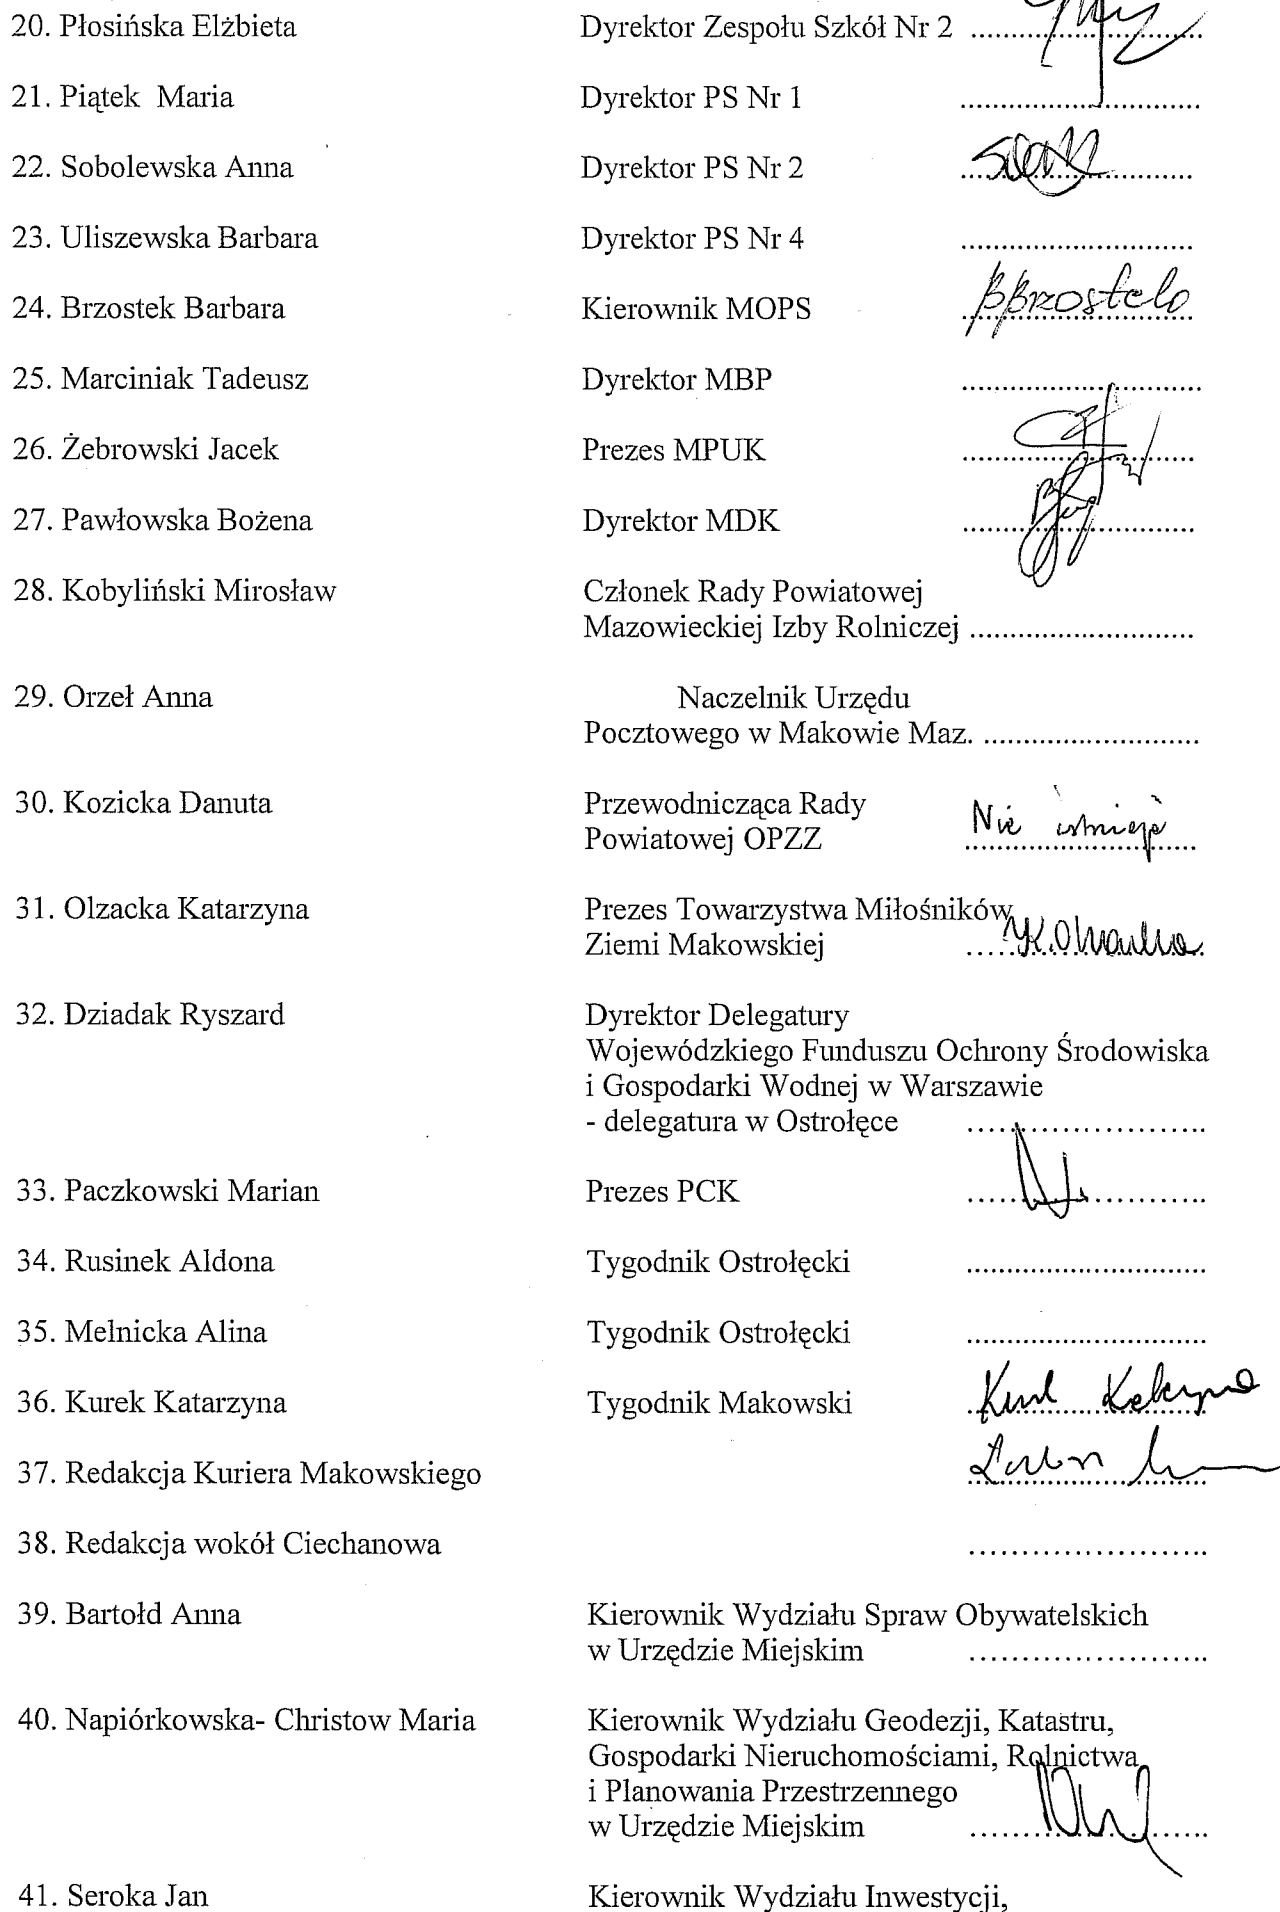 20. Płosińska Elżbieta Dyrektor Zespołu Szkół Nr 2 ..............................
21. Piątek Maria Dyrektor PS Nr 1 ..............................
22. Sobolewska Anna Dyrektor PS Nr 2 ..............................
23. Uliszewska Barbara Dyrektor PS Nr 4 ..............................
24. Brzostek Barbara Kierownik MOPS ..............................
25. Marciniak Tadeusz Dyrektor MBP ..............................
26. Żebrowski Jacek Prezes MPUK ..............................
27. Pawłowska Bożena Dyrektor MDK ..............................
28. Kobyliński Mirosław Członek Rady Powiatowej
Mazowieckiej Izby Rolniczej ............................
29. Orzeł Anna Naczelnik Urzędu
Pocztowego w Makowie Maz. ...........................
30. Kozicka Danuta Przewodnicząca Rady
Powiatowej OPZZ Nie istnieje
31. Olzacka Katarzyna Prezes Towarzystwa Miłośników
Ziemi Makowskiej ..............................
32. Dziadak Ryszard Dyrektor Delegatury
Wojewódzkiego Funduszu Ochrony Środowiska
i Gospodarki Wodnej w Warszawie
- delegatura w Ostrołęce ........................
33. Paczkowski Marian Prezes PCK ........................
34. Rusinek Aldona Tygodnik Ostrołęcki ..............................
35. Melnicka Alina Tygodnik Ostrołęcki ..............................
36. Kurek Katarzyna Tygodnik Makowski ..............................
37. Redakcja Kuriera Makowskiego ..............................
38. Redakcja wokół Ciechanowa ........................
39. Bartołd Anna Kierownik Wydziału Spraw Obywatelskich
w Urzędzie Miejskim ........................
40. Napiórkowska- Christow Maria Kierownik Wydziału Geodezji, Katastru,
Gospodarki Nieruchomościami, Rolnictwa
i Planowania Przestrzennego
w Urzędzie Miejskim ........................
41. Seroka Jan Kierownik Wydziału Inwestycji,